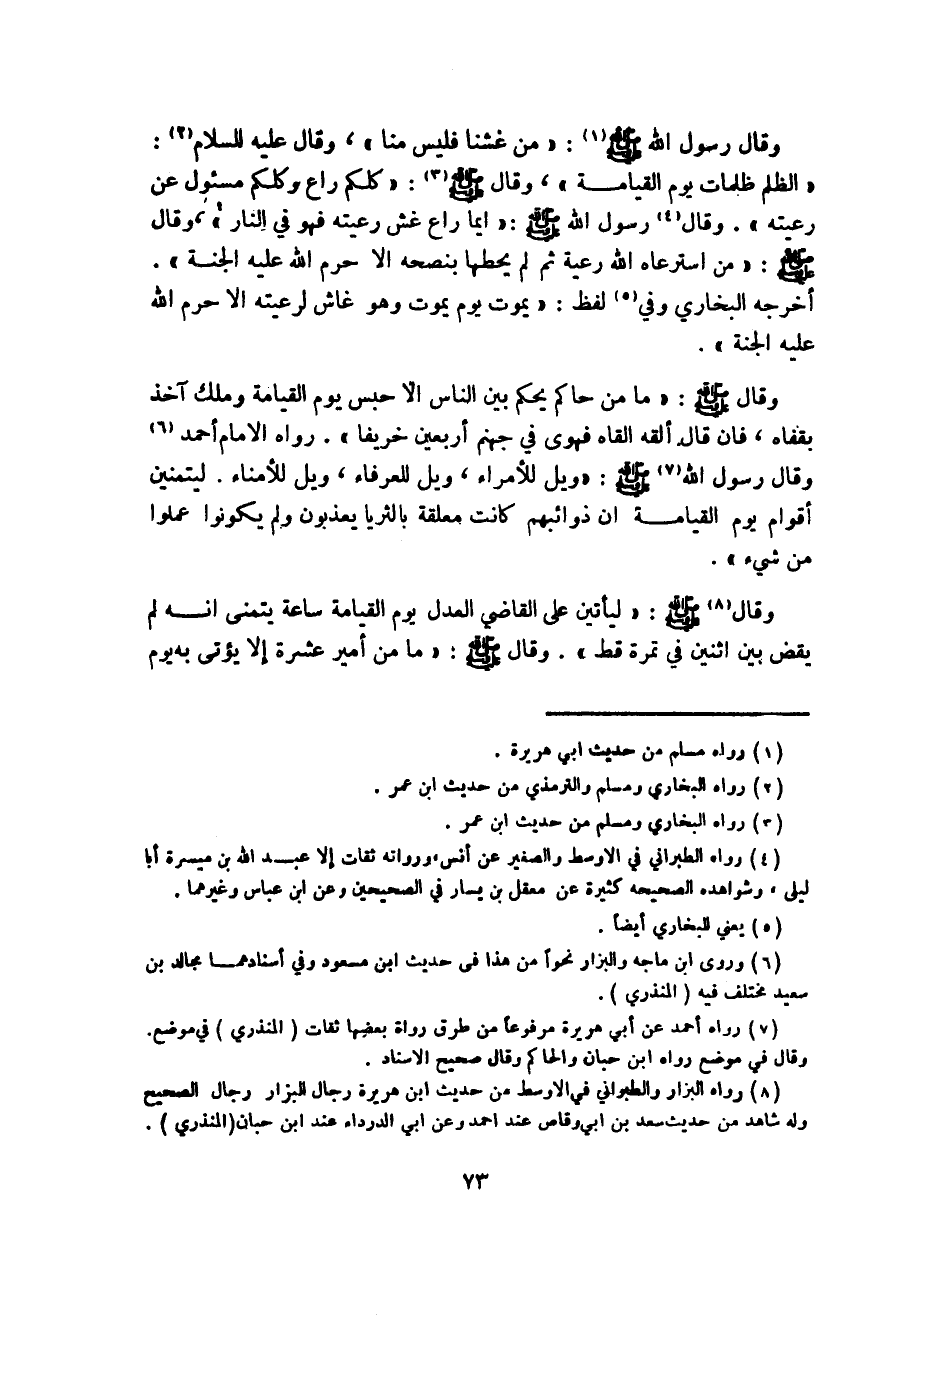 وقال رسول الله ﷺ(١) : « من غشنا فليس منا » ، وقال عليه للسلام(٢) :
« الظلم ظلمات يوم القيامــة » ، وقال ﷺ(٣) : « كلكم راع وكلكم مسئول عن
رعيته » . وقال(٤) رسول الله ﷺ :« ايما راع غش رعيته فهو في النار » ،وقال
ﷺ : « من استرعاه الله رعية ثم لم يحطها بنصحه الا حرم الله عليه الجنــة » .
أخرجه البخاري وفي(٥) لفظ : « يموت يوم يموت وهو غاش لرعيته الا حرم الله
عليه الجنة » .
وقال ﷺ : « ما من حاكم يحكم بين الناس الا حبس يوم القيامة وملك آخذ
بقفاه ، فان قال ألقه القاه فهوى في جهنم أربعين خريفا » . رواه الامام أحمد (٦)
وقال رسول الله(٧) ﷺ : «ويل للأمراء ، ويل للعرفاء ، ويل للأمناء . ليتمنين
أقوام يوم القيامــة ان ذوائبهم كانت معلقة بالثريا يعذبون ولم يكونوا عملوا
من شيء » .
وقال(٨) ﷺ : « ليأتين على القاضي العدل يوم القيامة ساعة يتمنى انــه لم
يقض بين اثنين في تمرة قط » . وقال ﷺ : « ما من أمير عشرة إلا يؤتى به يوم
(١) رواه مسلم من حديث ابي هريرة .
(٢) رواه البخاري ومسلم والترمذي من حديث ابن عمر .
(٣) رواه البخاري ومسلم من حديث ابن عمر .
(٤) رواه الطبراني في الاوسط والصغير عن أنس، ورواته ثقات إلا عبــد الله بن ميسرة أبا
ليلى ، وشواهده الصحيحه كثيرة عن معقل بن يسار في الصحيحين وعن ابن عباس وغيرهما .
(٥) يعني للبخاري أيضاً .
(٦) وروى ابن ماجه والبزار نحواً من هذا فى حديث ابن مسعود وفي أسنادهمــا مجالد بن
سعيد مختلف فيه ( المنذري ) .
(٧) رواه أحمد عن أبي هريرة مرفوعاً من طرق رواة بعضها ثقات ( المنذري ) في موضع.
وقال في موضع رواه ابن حبان والحاكم وقال صحيح الاسناد .
(٨) رواه البزار والطبراني في الاوسط من حديث ابن هريرة رجال البزار رجال الصحيح
وله شاهد من حديث سعد بن ابي وقاص عند احمد وعن ابي الدرداء عند ابن حبان(المنذري ) .
٧٣